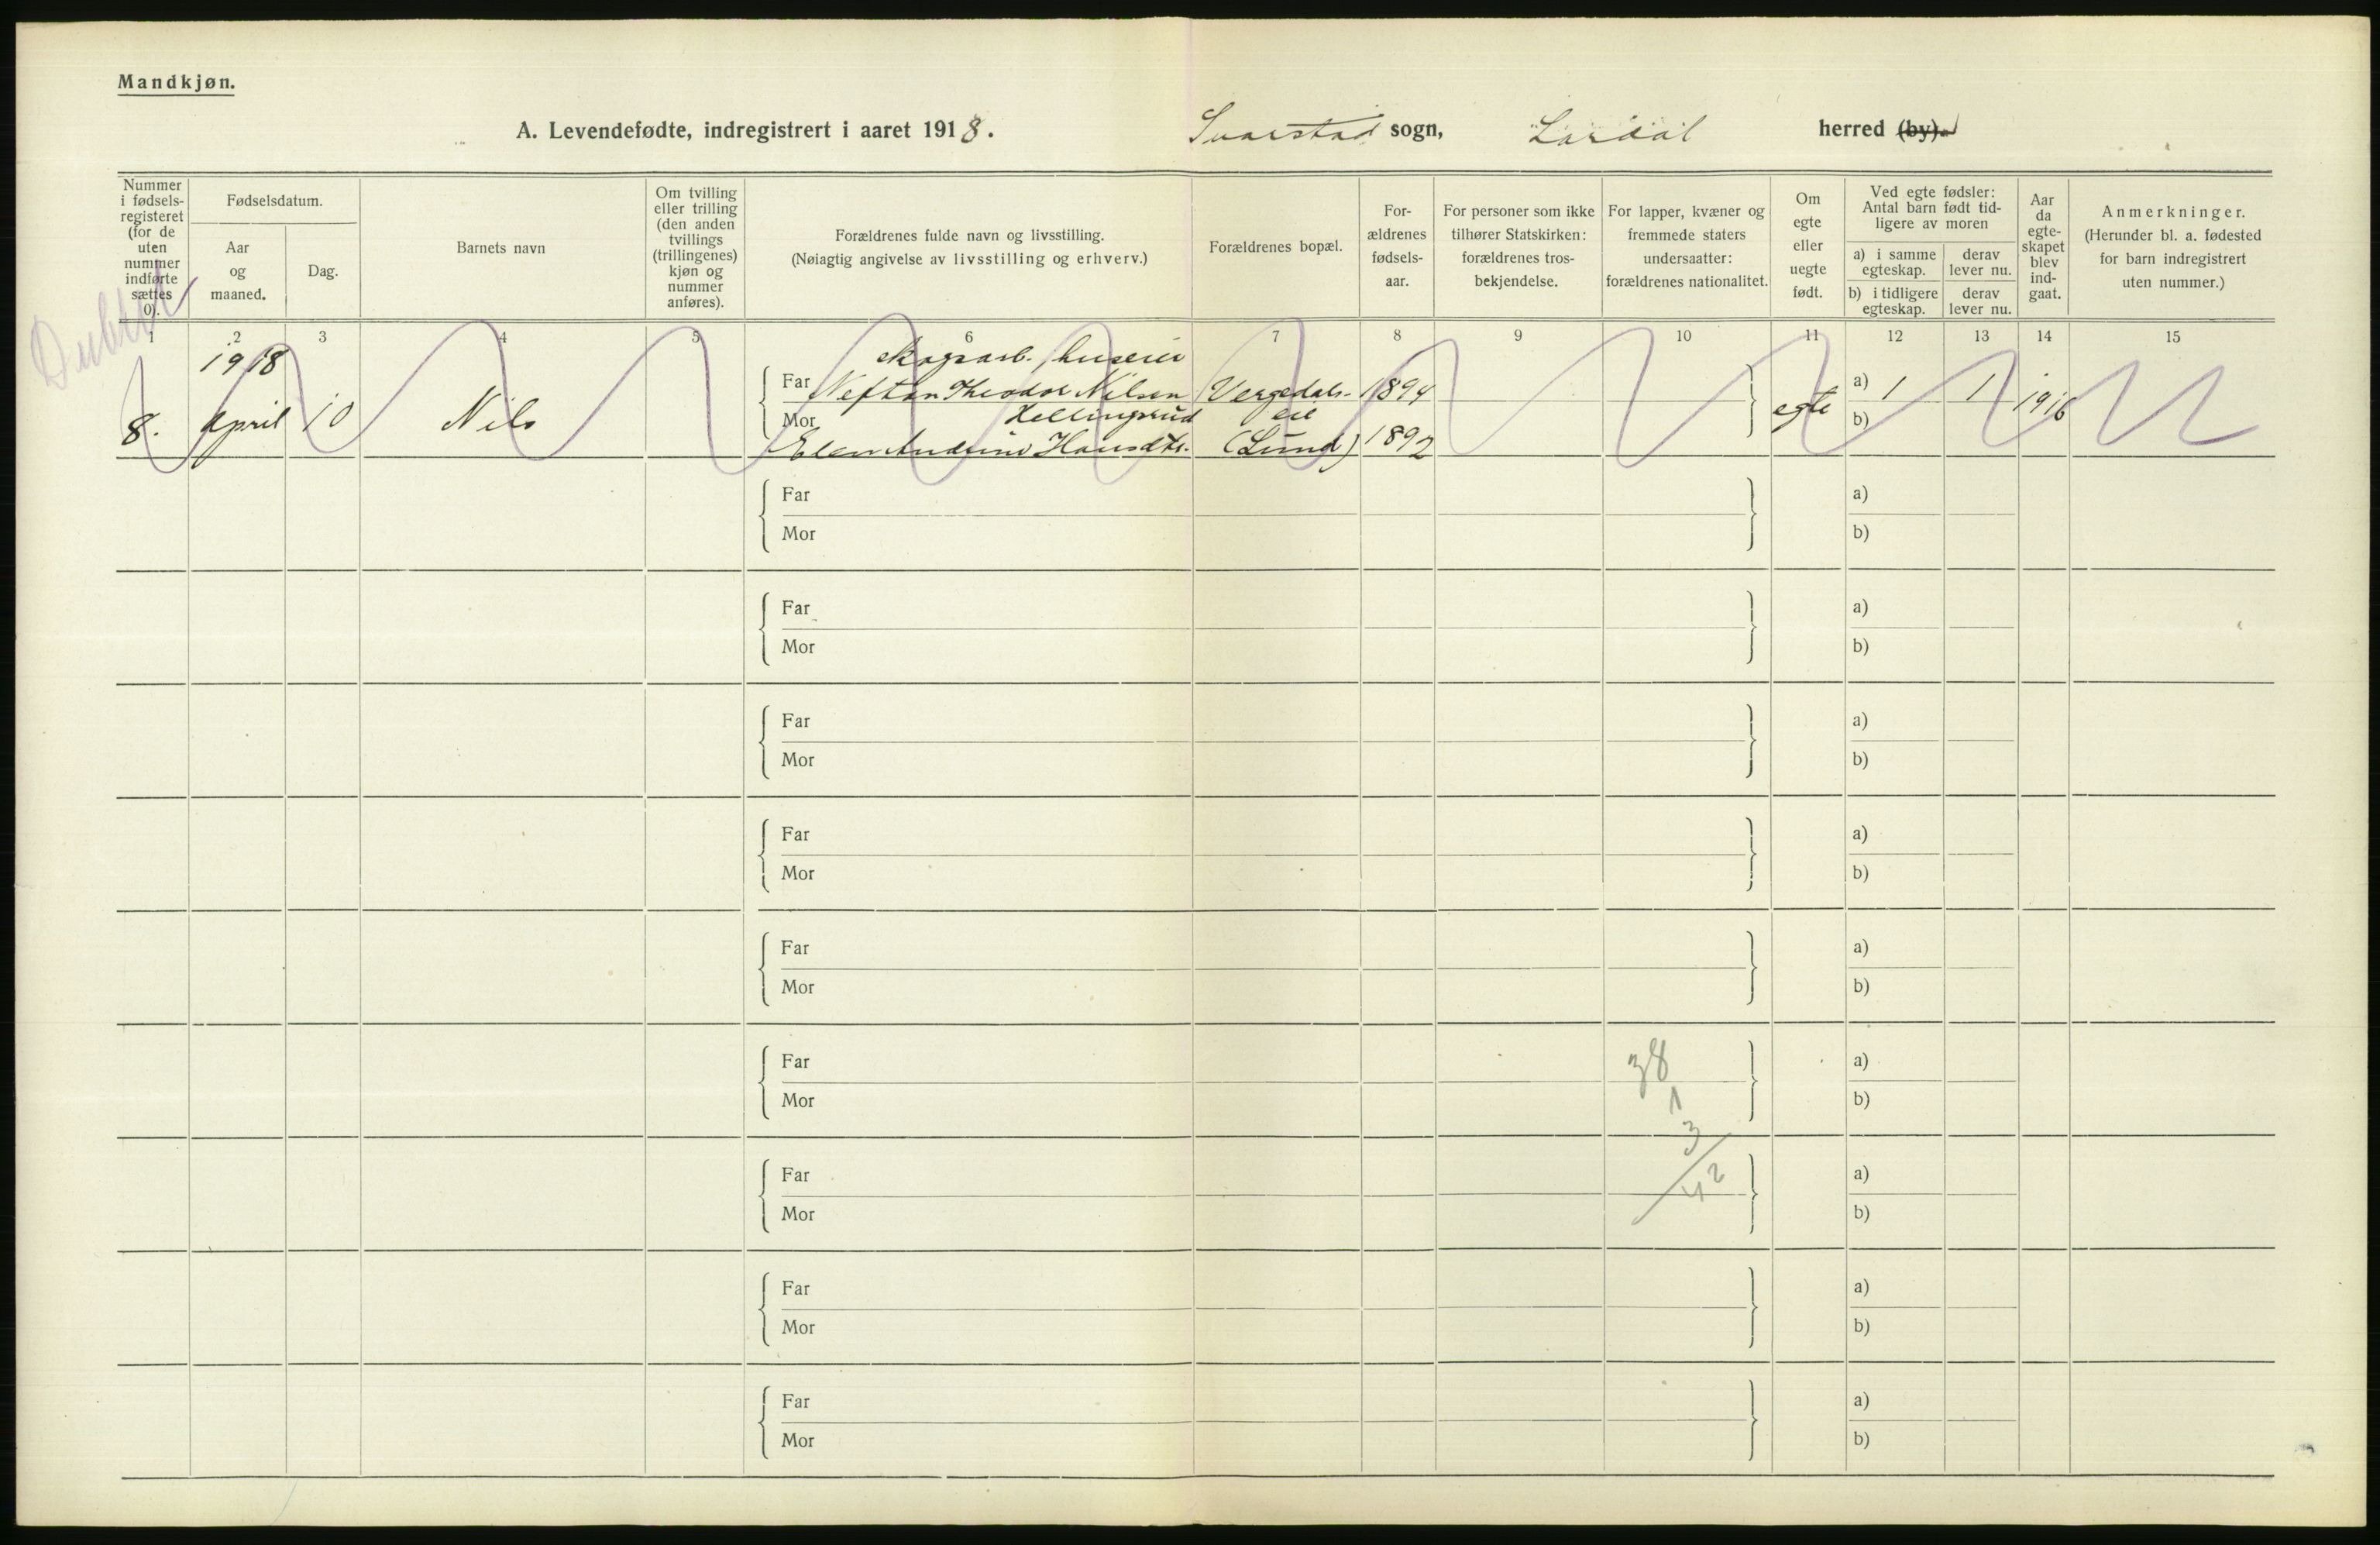 Mandkjøn.
A. Levendefødte, indregistrert i aaret 1918. Svarstad sogn, Lardal herred (by).
Nummer i fødsels-registeret (for de uten nummer indførte sættes 0).
Fødselsdatum.
Aar og maaned.
Dag.
Barnets navn
Om tvilling eller trilling (den anden tvillings (trillingenes) kjøn og nummer anføres).
Forældrenes fulde navn og livsstilling.
(Nøiagtig angivelse av livsstilling og erhverv.)
Forældrenes bopæl.
For-ældrenes fødsels-aar.
For personer som ikke tilhører Statskirken: forældrenes tros-bekjendelse.
For lapper, kvæner og fremmede staters undersaatter: forældrenes nationalitet.
Om egte eller uegte født.
Ved egte fødsler: Antal barn født tid-ligere av moren
a) i samme egteskap.
derav lever nu.
b) i tidligere egteskap.
derav lever nu.
Aar da egte-skapet blev ind-gaat.
Anmerkninger.
(Herunder bl. a. fødested for barn indregistrert uten nummer.)
1 2 3 4 5 6 7 8 9 10 11 12 13 14 15
1918 skogsarb. huseier
Far Neftan Theodor Nilsen Vergedals- 1894 a) 1 1
8. April 10 Nils Hellingsrud eie egte 1916
Mor b)
Elen Andrine Hansdtr. (Lund) 1892
Far a)
Mor b)
Far a)
Mor b)
Far a)
Mor b)
Far a)
Mor b)
Far a)
Mor b)
Far 38 a)
Mor 1 b)
3
Far 42 a)
Mor b)
Far a)
Mor b)
Far a)
Mor b)